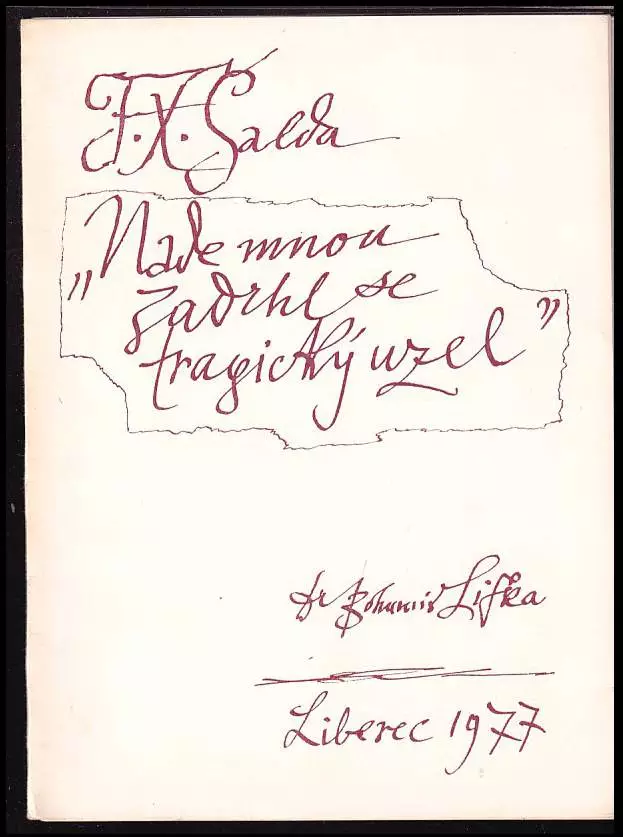 F. X. Šalda
„Nade mnou
zadrhl se
tragický uzel”
Dr Bohumír Lifka
Liberec 1977